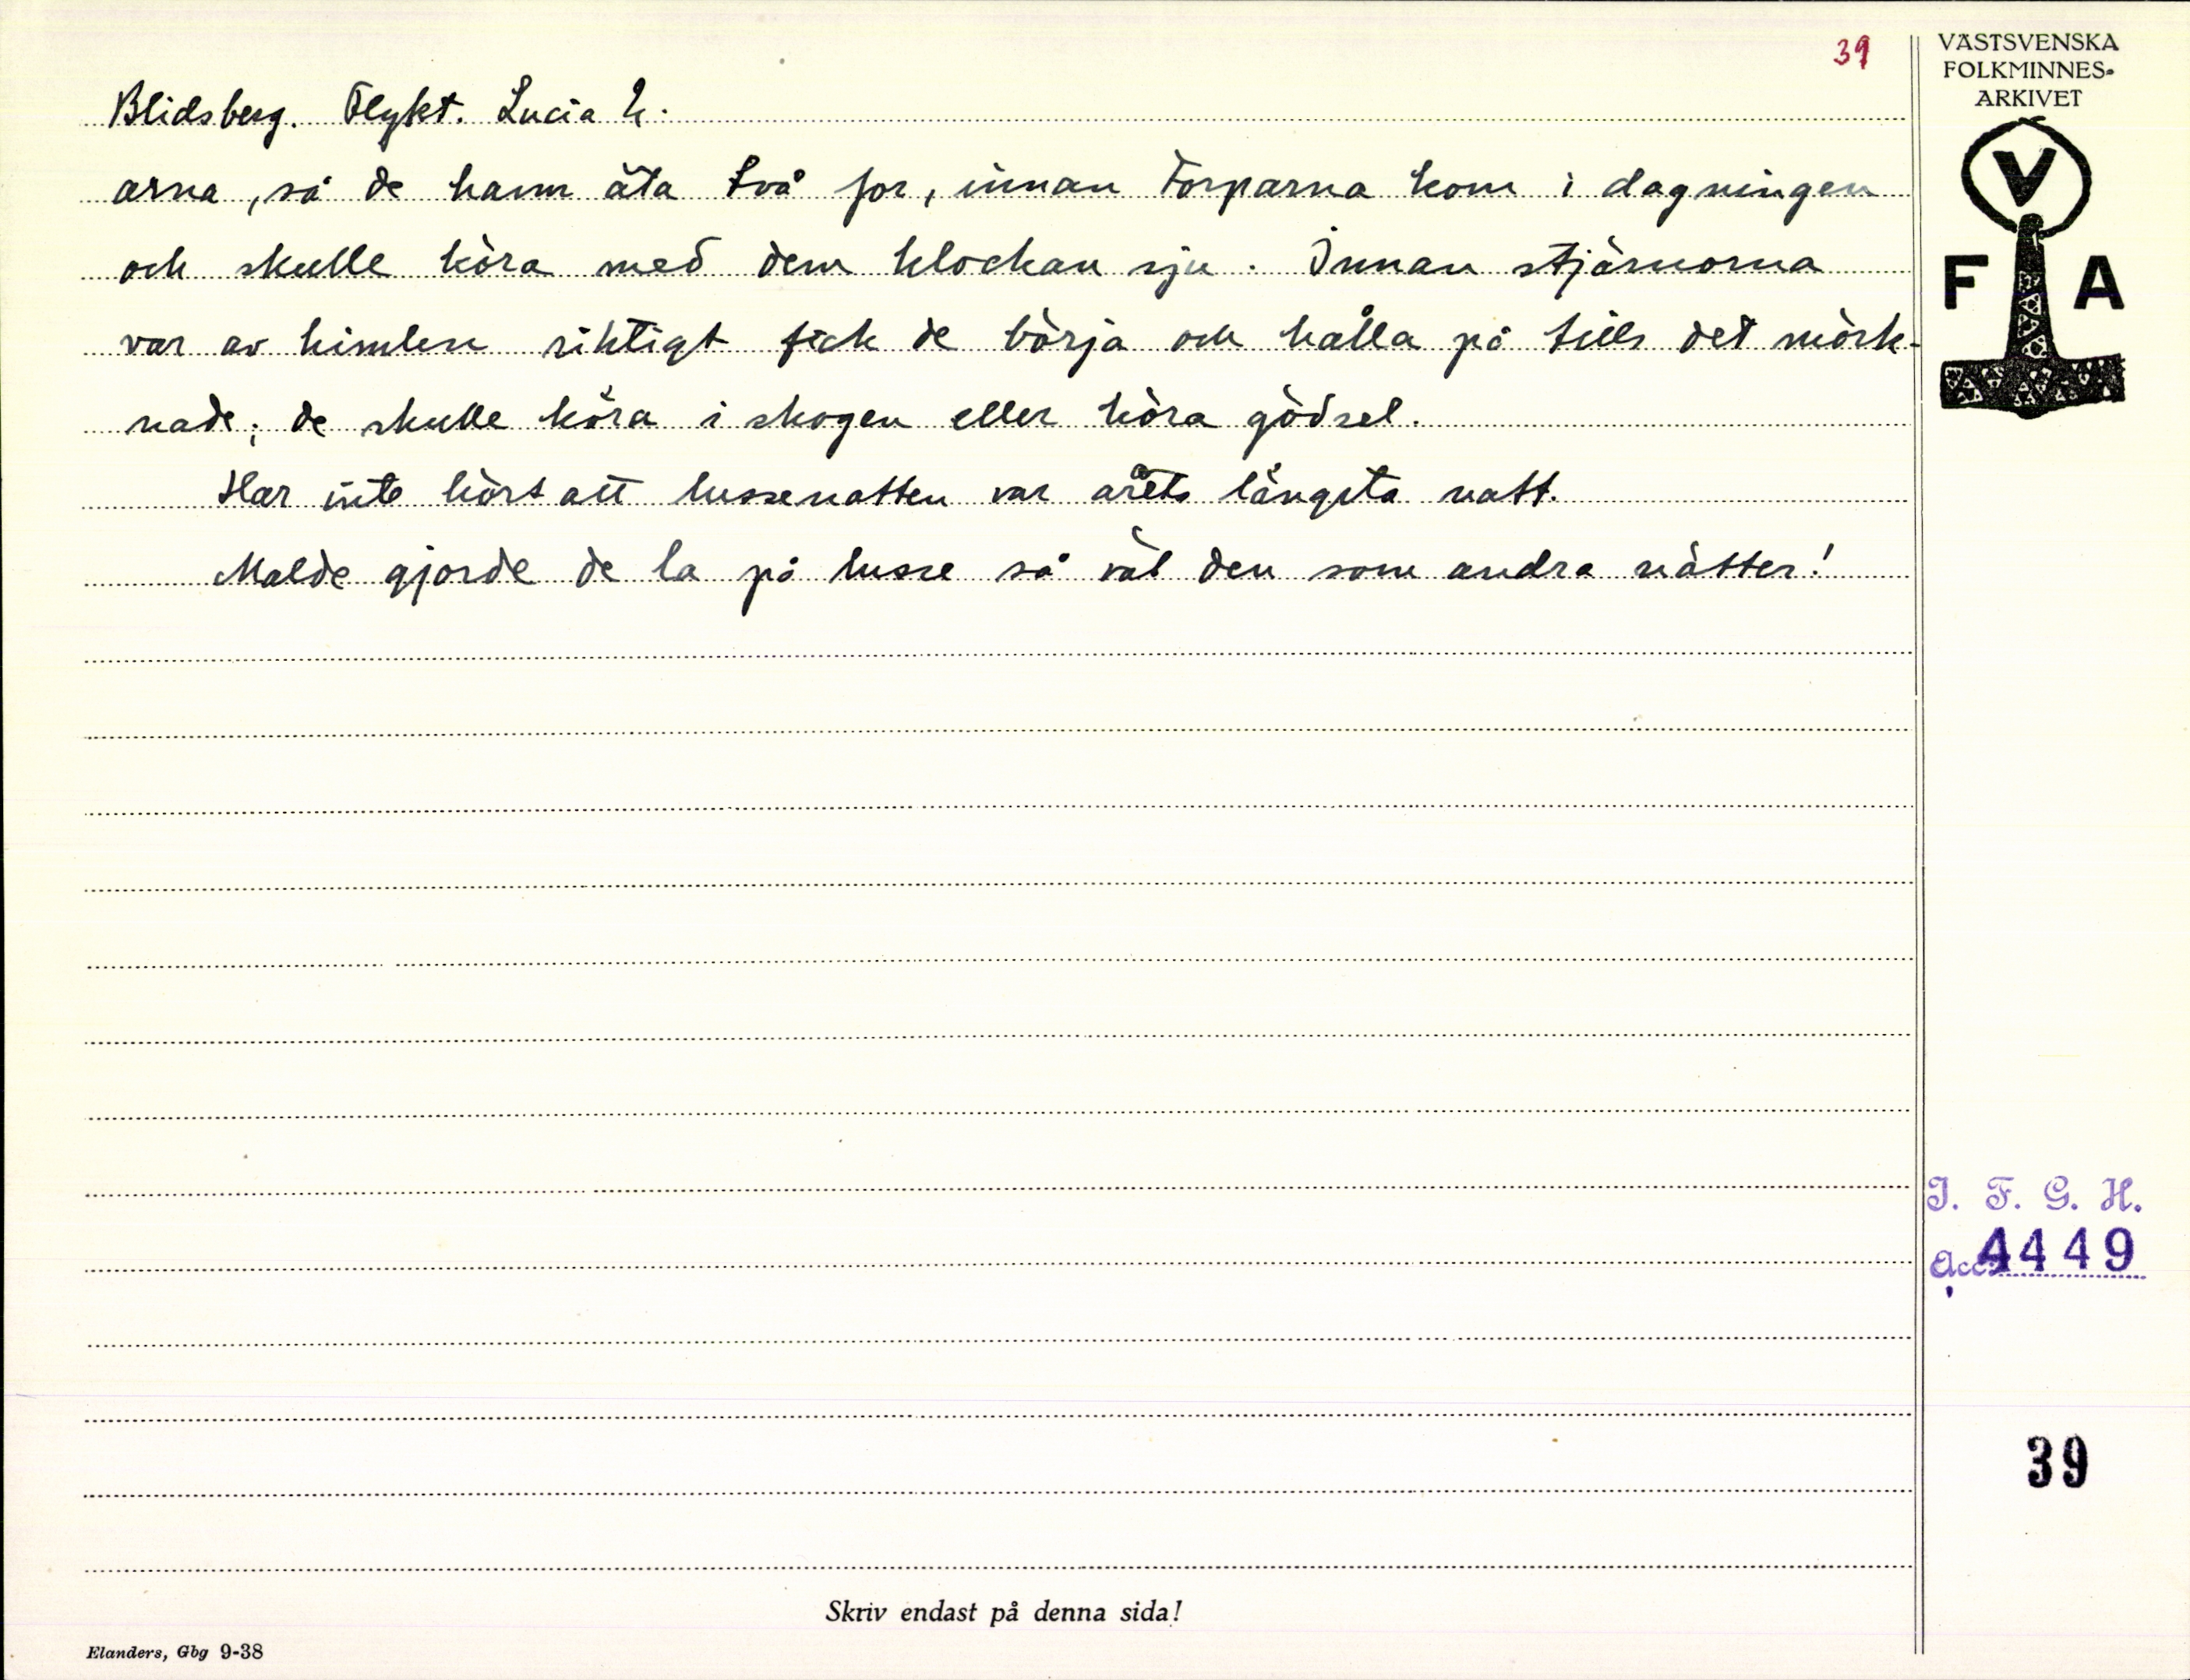 39
VÄSTSVENSKA
FOLKMINNES-
ARKIVET
V
F A
Blidsberg. Flykt. Lucia 4.
arna, så de hann äta två for, innan torparna kom i dagningen
och skulle köra med dem klockan sju. Innan stjärnorna
var av himlen riktigt fick de börja och hålla på tills det mörk-
nade; de skulle köra i skogen eller köra gödsel.
Har inte hört att lussenatten var årets längsta natt.
Malde gjorde de la på lusse så väl den som andra nätter!
I. F. G. H.
Acc. 4449
39
Skriv endast på denna sida!
Elanders, Gbg 9-38